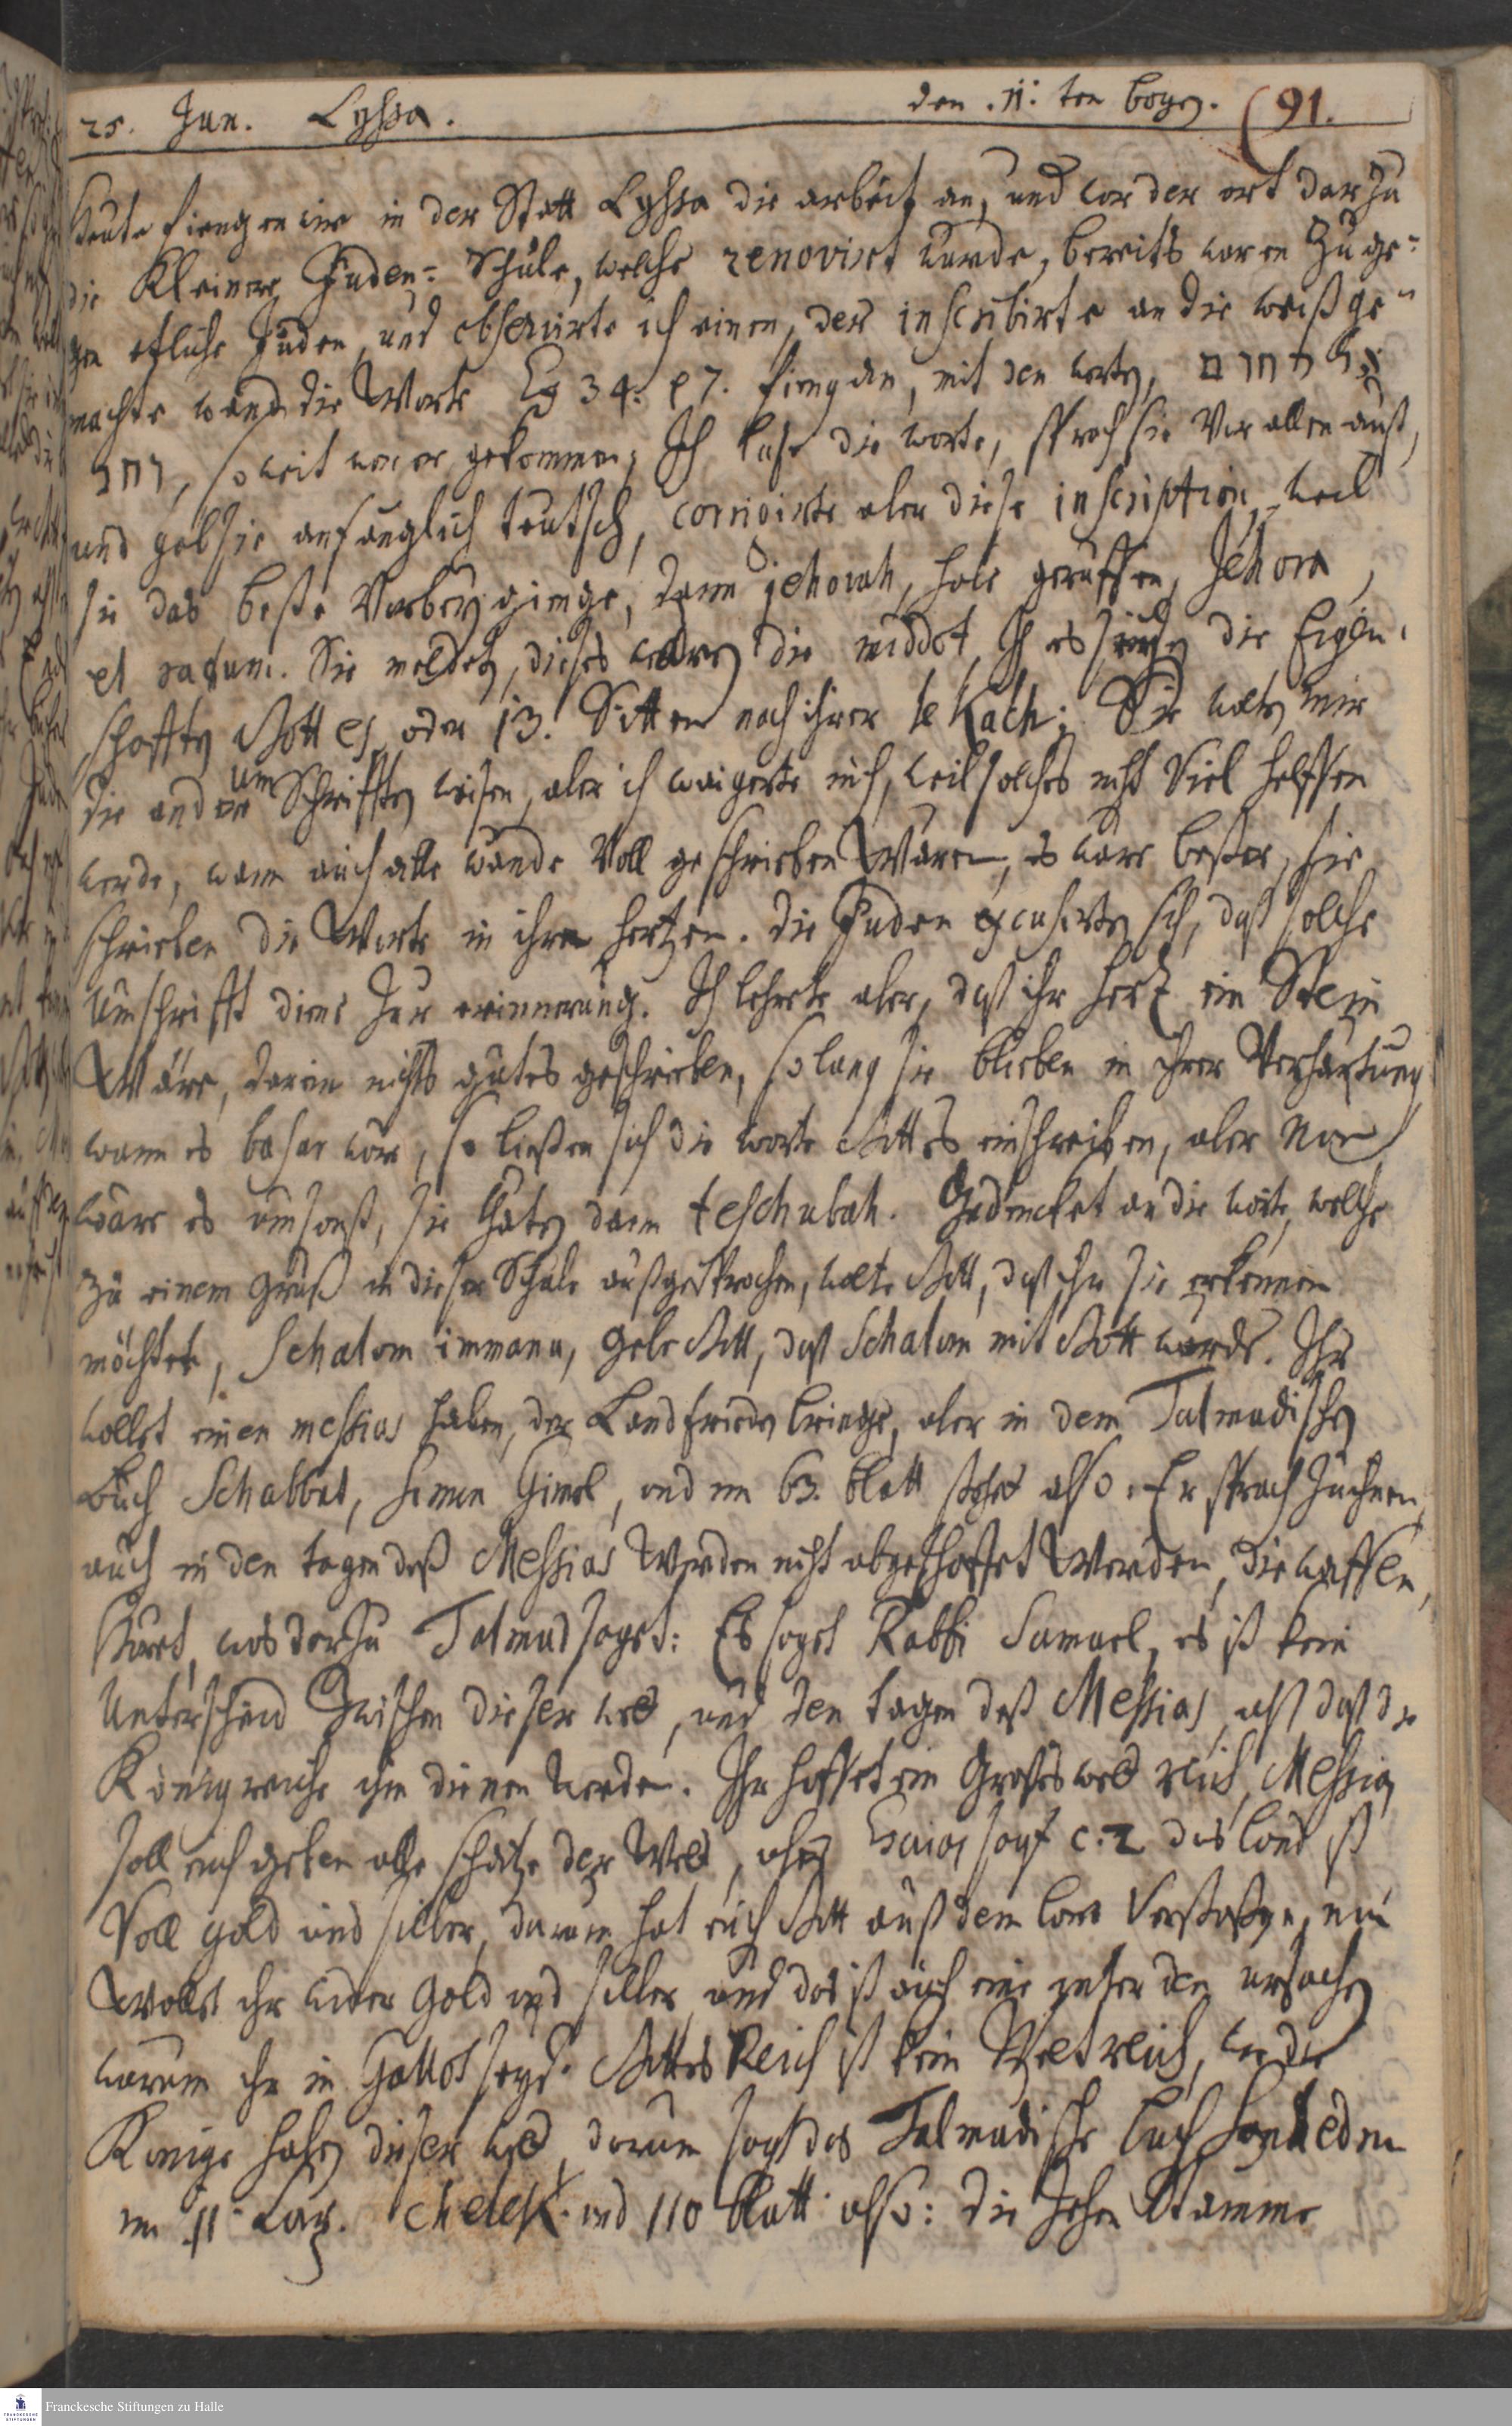 25. Jun. Lyssa. den .11: ten bogen. (91.
Heute fiengen wir in der Statt Lyssa die arbeit an, und war der ort darzu
die Kleinere Juden-Schule, welche renoviret wurde, bereits waren zuge-
gen etliche Juden, und observirte ich einen, der inscribirte an die weiß ge-
machte wand die Worte Ex 34. fieng an, mit den worten, רחום אל
וחנון, so weit war er gekommen, Ich lase die worte, sprach sie Vor allen auß,
und gab sie anfänglich teutsch, corrigirte aber diese inscription, weil
sie das beste Vorbey gienge, dann jehovah, habe geruffen, Jehova,
et . Sie meldeten, dieses wären die middot, es seyen die Eigen-
schafften Gottes, oder 13. Sitten nach ihrer ; Sie wolten mir
die andere umSchrifften weisen, aber ich waigerte mich, weil solches nicht Viel helffen
werde, wann auch alle wände Voll geschrieben Wären, es wäre besser, sie
schrieben die Worte in ihre hertzen. die Juden excusirten sich, daß solche
Umschrifft diene zur erinnerung. Ich lehrete aber, daß ihr hertz ein Stein
Wäre, darein nichts gutes geschrieben, so lang sie blieben in ihrer Verhärtung
wann es basar wär, so liessen sich die worte Gottes einschreiben, aber nun
wäre es umsonst, sie thäten dann teschubah. Gedencket an die worte, welche
zu einem gruß in dieser Schule außgesprochen, wolte Gott, daß ihr sie erkennen
möchtet, Schalom immanu, gebe Gott, daß Schalom mit Gott werde. Ihr
wollet einen messias haben, der Landfrieden bringe, aber in dem Talmudischen
Buch Schabbat, simen Gimel, und im 63. blatt stehet also. Er sprach zu ihnen,
auch in den tagen deß Messias Werden nicht abgeschaffet Werden, die waffen,
Höret, was darzu Talmud saget: Es saget Rabbi Samuel, es ist kein
Unterscheid zwischen dieser welt, und den tagen deß Messias, alß daß die
Königreiche ihm dienen werden. Ihr hoffet ein Grosses welt reich, Messias
soll euch geben alle schätze der Welt, Esaias sagt c. 2 das land ist
Voll gold und silber, darum hat euch Gott auß dem land Verstossen, nun
Wollet ihr wider Gold und silber, und das ist auch eine unter den ursachen
warum ihr in Gallot seyd. Gottes Reich ist kein Weltreich, wie die
Könige haben dieser welt, darum sagt das Talmudische buch Sanhedrin
im 11 Cap. chelek und 110 blatt also: die zehen Stämme
Franckesche Stiftungen zu Halle